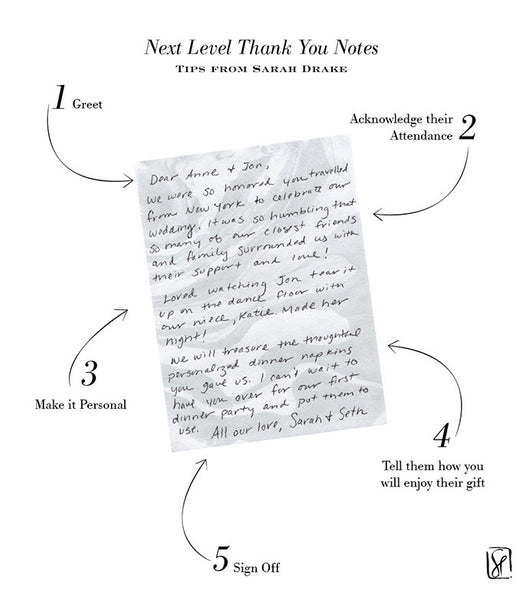 Next Level Thank You Notes
TIPS FROM SARAH DRAKE
1 Greet
Acknowledge their
Attendance 2
Dear Anne & Jon,
We were so honored you travelled
from New York to celebrate our
wedding. It was so humbling that
so many of our closest friends
and family surrounded us with
their support and love!
Loved watching Jon tear it
up on the dance floor with
our niece, Katie. Made her
night!
We will treasure the thoughtful
personalized dinner napkins
you gave us. I can't wait to
have you over for our first
dinner party and put them to
use. All our love, Sarah & Seth
3
Make it Personal
4
Tell them how you
will enjoy their gift
5 Sign Off